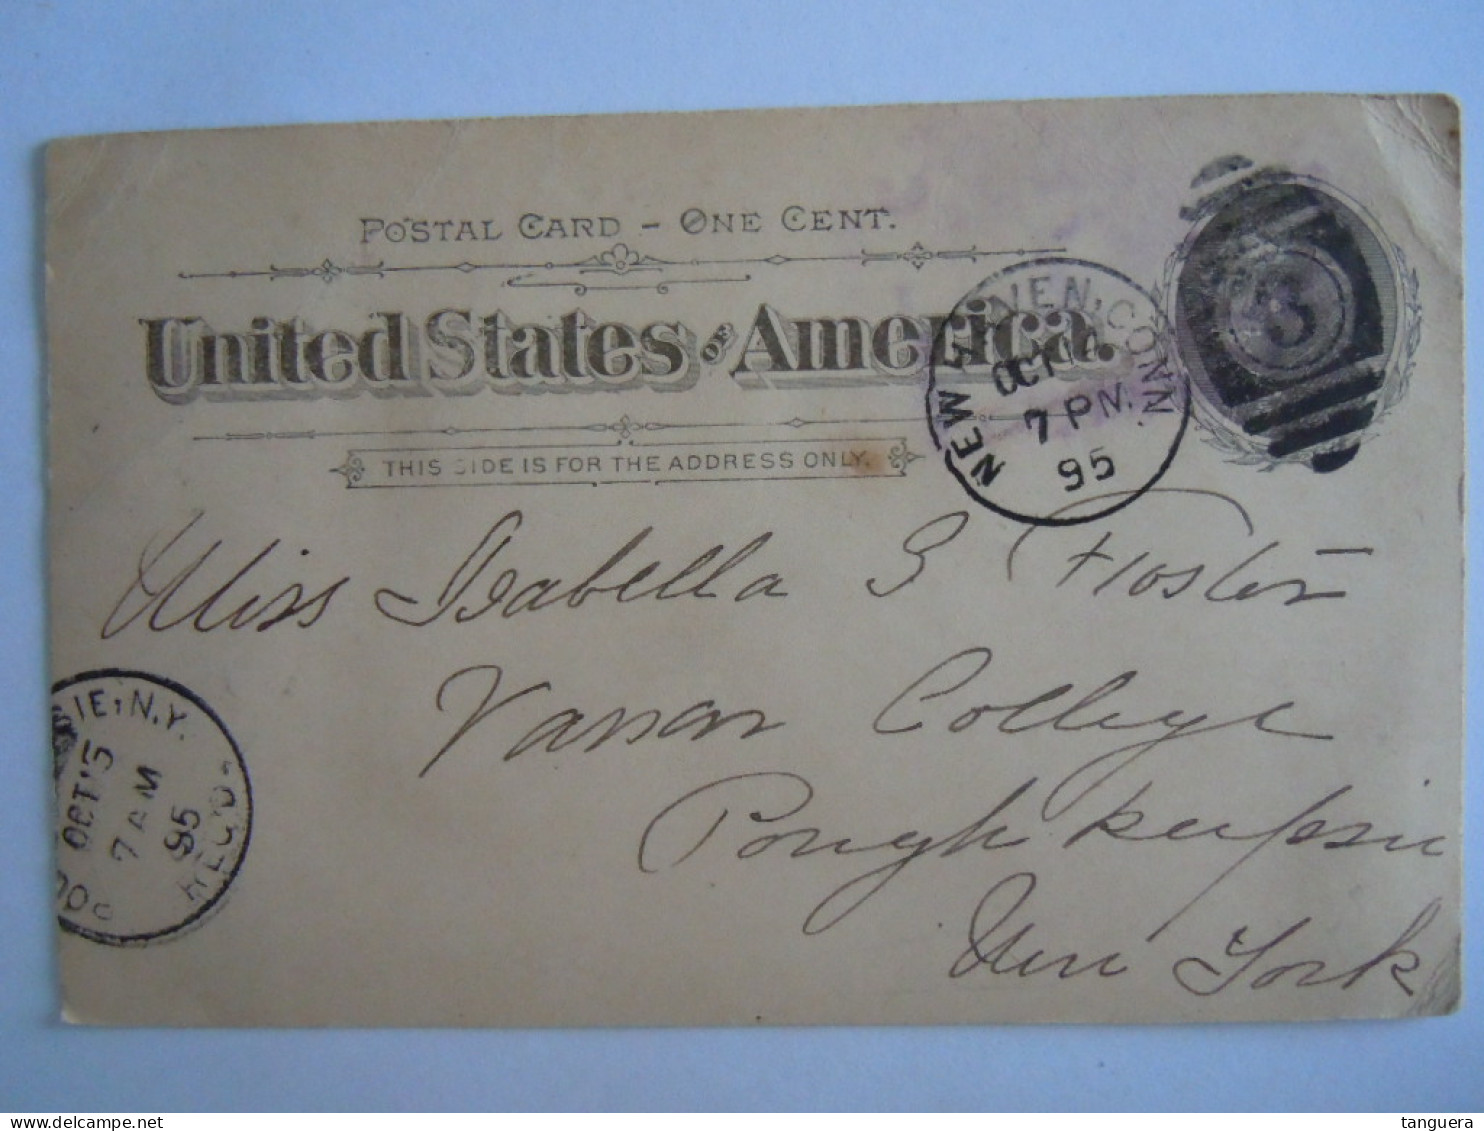 POSTAL CARD - ONE CENT.
United States OF America.
THIS SIDE IS FOR THE ADDRESS ONLY.
NEW HAVEN, CONN
OCT 14
7 PM
95
3
Miss Isabella S Foster
Vassar College
Poughkeepsie
New York
IE, N.Y.
OCT 15
7 AM
95
REC'D.
POU
tanguera
www.delcampe.net